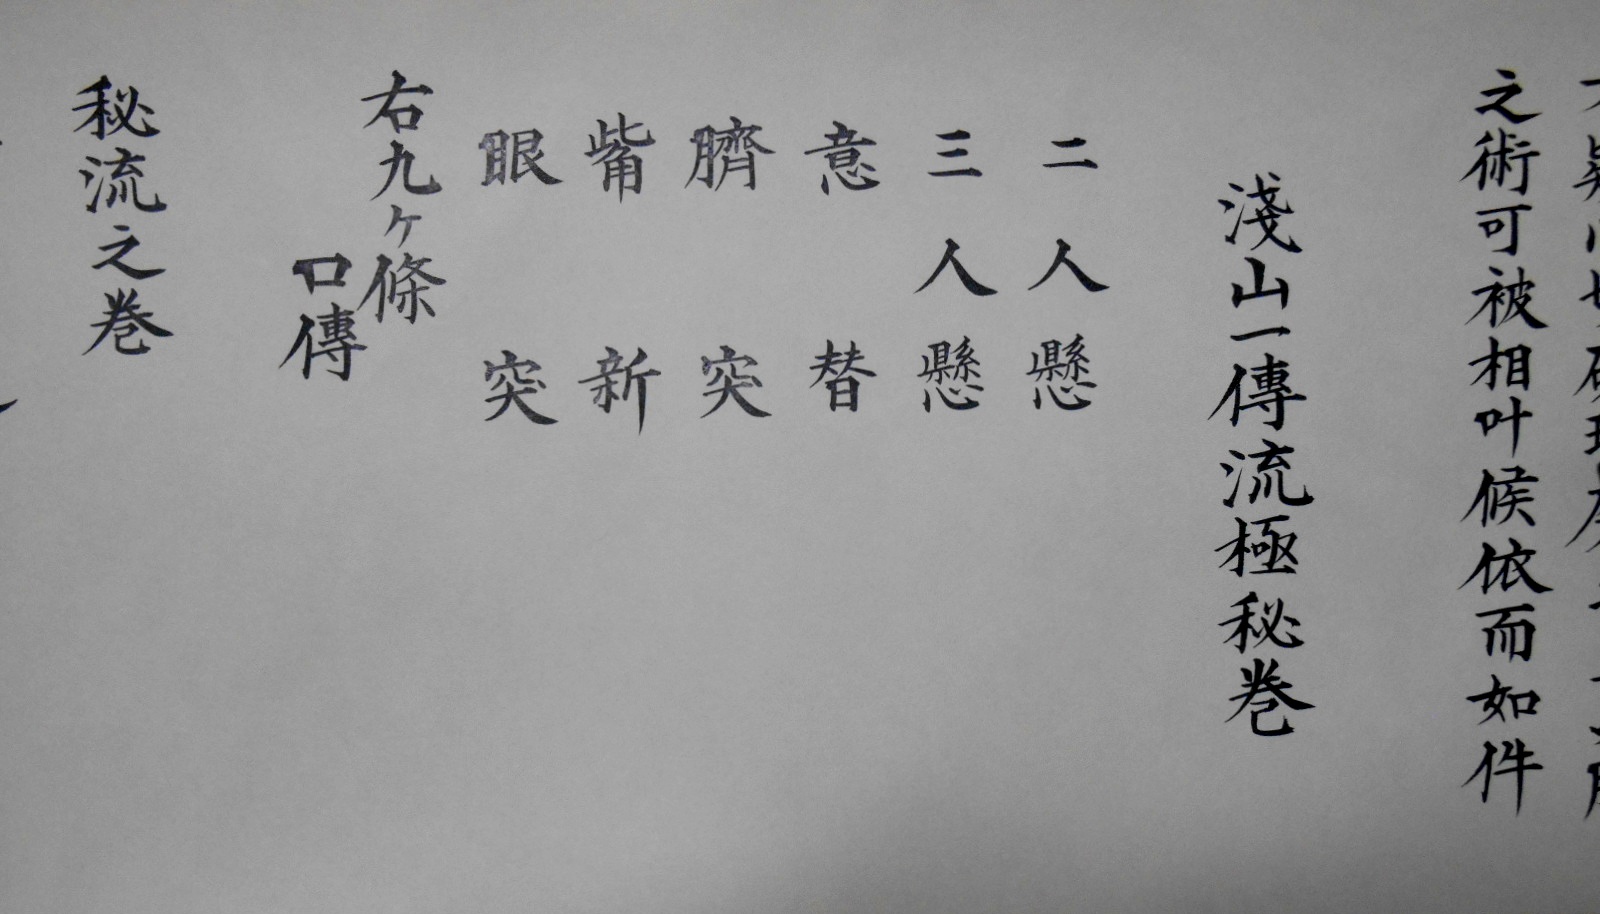 之術可被相叶候依而如件
淺山一傳流極秘巻
二人懸
三人懸
意替
臍突
觜新
眼突
右九ヶ條
口傳
秘流之巻